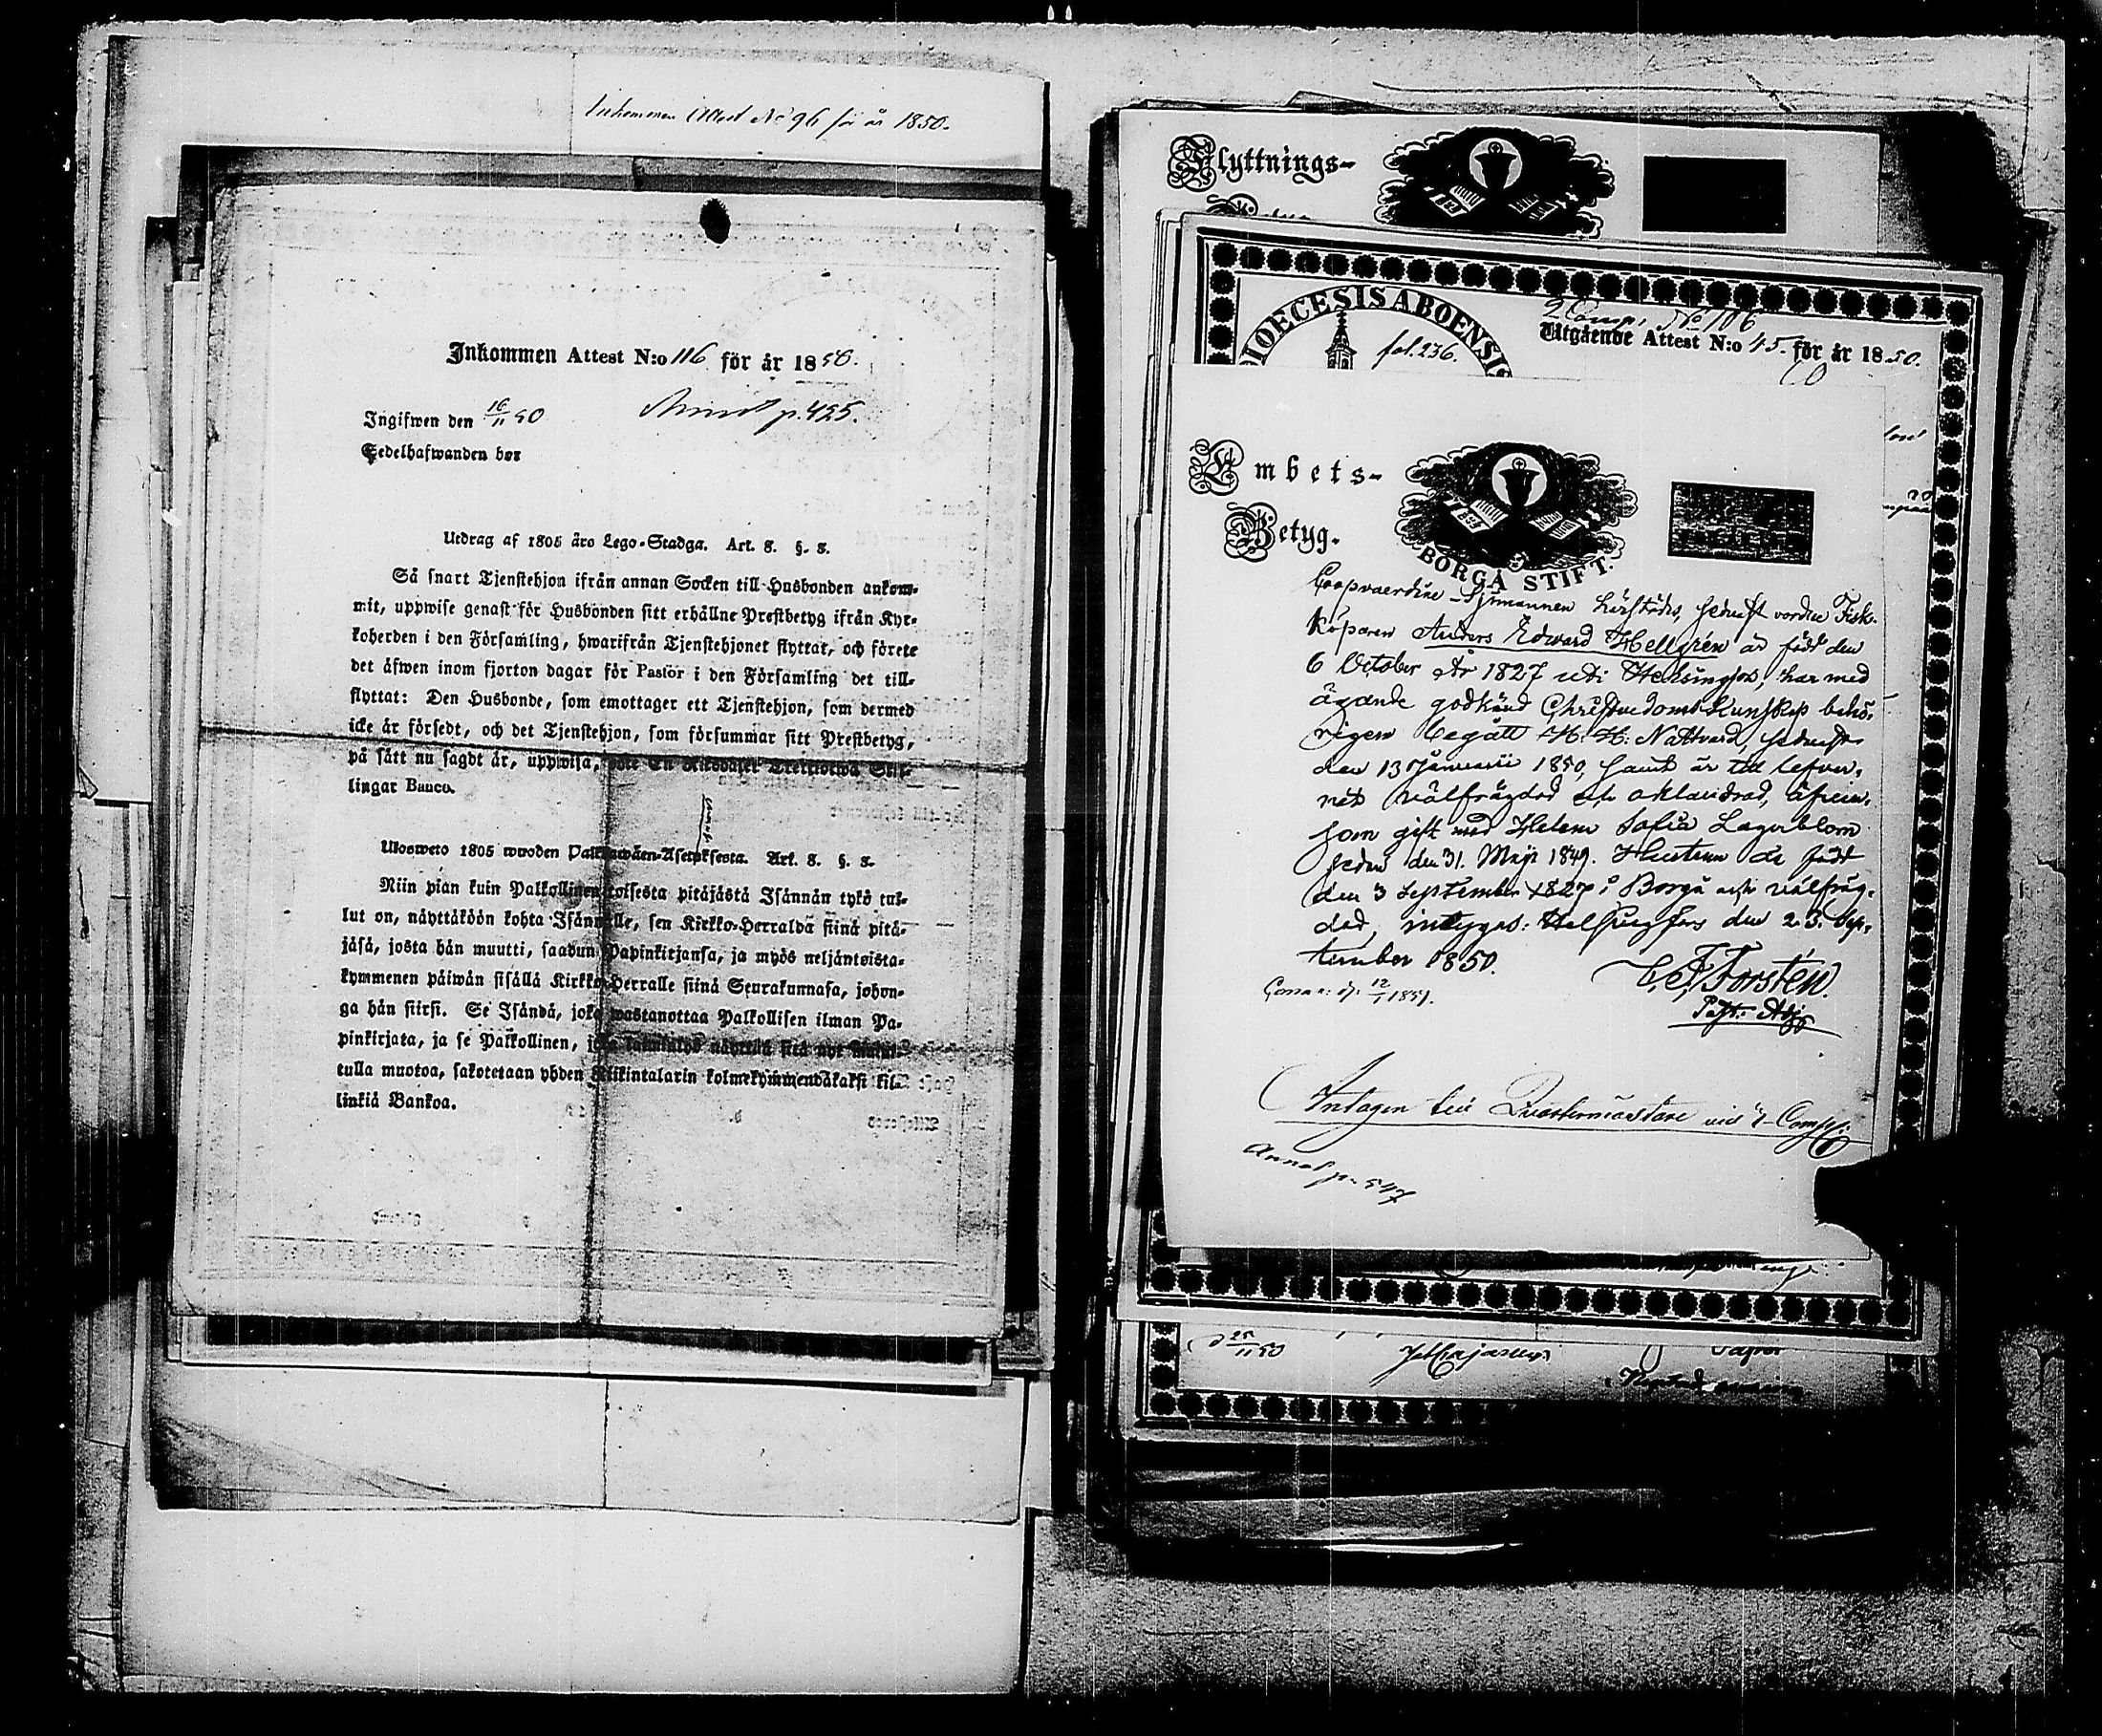 Inkommen Attest No 96 för år 1850.
Inkommen Attest N:o 116 för år 1850.
Ingifwen den 16/11 50
Annot p. 425.
Sedelhafwanden bor
Utdrag af 1805 års Lego-Stadga. Art. 8. §. 8.
Så snart Tjenstehjon ifrån annan Socken till Husbonden ankom-
mit, uppwise genast för Husbonden sitt erhållne Prestbetyg ifrån Kyr-
koherden i den Församling, hwarifrån Tjenstehjonet flyttat, och förete
det äfwen inom fjorton dagar för Pastor i den Församling det till-
flyttat: Den Husbonde, som emottager ett Tjenstehjon, som dermed
icke är försedt, och det Tjenstehjon, som försummar sitt Prestbetyg,
på sätt nu sagdt är, uppwisa, böte En Riksdaler Trettiotwå Skil-
lingar Banco.
Ulosweto 1805 wuoden Palkkawäen-Asetuksesta. Art. 8. §. 8.
Niin pian kuin Palkollinen toisesta pitäjästä Isännän tykö tul-
lut on, näyttäköön kohta Isännälle, sen Kirkko-Herralda siinä pitä-
jäsä, josta hän muutti, saadun Papinkirjansa, ja myös neljäntoista-
kymmenen päiwän sisällä Kirkko-Herralle siinä Seurakunnasa, johon-
ga hän siirsi. Se Isändä, joka wastanottaa Palkollisen ilman Pa-
pinkirjata, ja se Palkollinen, joka näyttää sitä nyt
tulla muotoa, sakotetaan yhden Riksintalarin kolmekymmendäkaksi kil-
linkiä Bankoa.
Flyttnings-
DIOECESIS ABOENSIS
fol. 236.
2 Comp. No 106
Utgående Attest N:o 45. för år 1850.
Embets-
Betyg.
BORGÅ STIFT.
Coopvaerdine-Sjömannen sedermest vorden Fisk-
köparen Anders Edward Hellgrén är född den
6 October År 1827 uti Helsingfors, har med
ägande godkänd Christendoms Kunskap behö-
rigen begått H. H. Nattvard, sednast
den 13 Januarii 1850, samt är till lefver-
net välfrägdad och oklandrad, äfven-
som gift med Helena Sofia Lagerblom
sedan den 31. Maji 1849. Hustrun är född
den 3 September 1827 i Borgå och välfräg-
dad, intygas: Helsingfors den 23. Sep-
tember 1850.
C. F. Forstén.
Past. Adj.
12/1 1851.
Antagen till Qvartermästare vid 1 Comp:
Annot p. 547
25/11 50